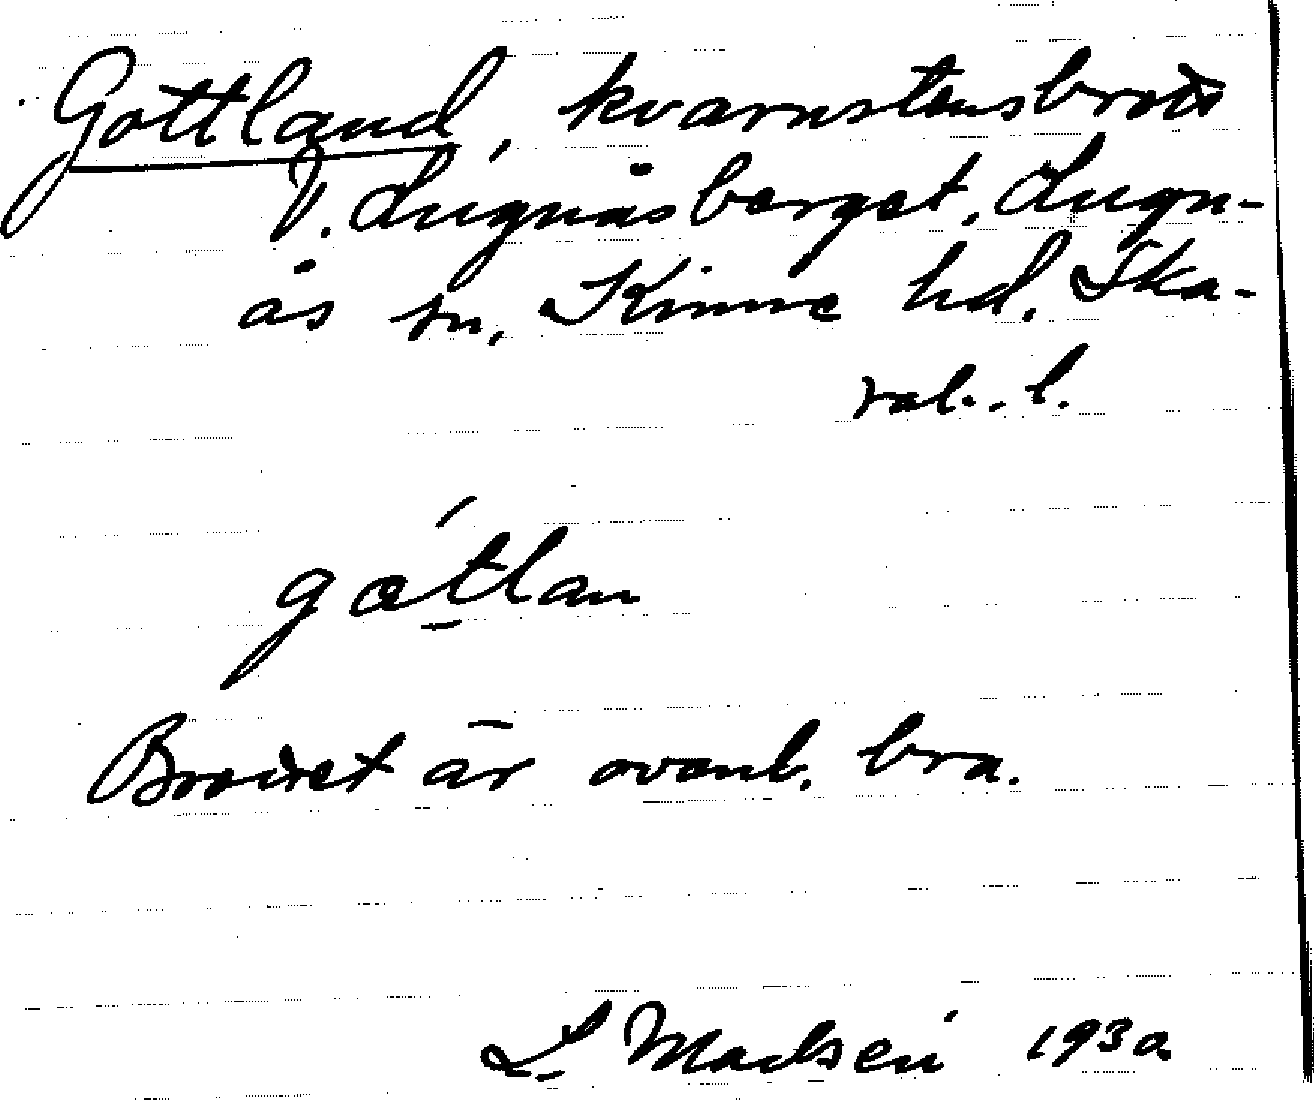 Gottland, kvarnstensbrott
V. Lugnåsberget, Lugn-
ås sn, Kinne hd. Ska-
rab. l.
gåtlan
Brottet är ovanl. bra.
L. Madsén 193